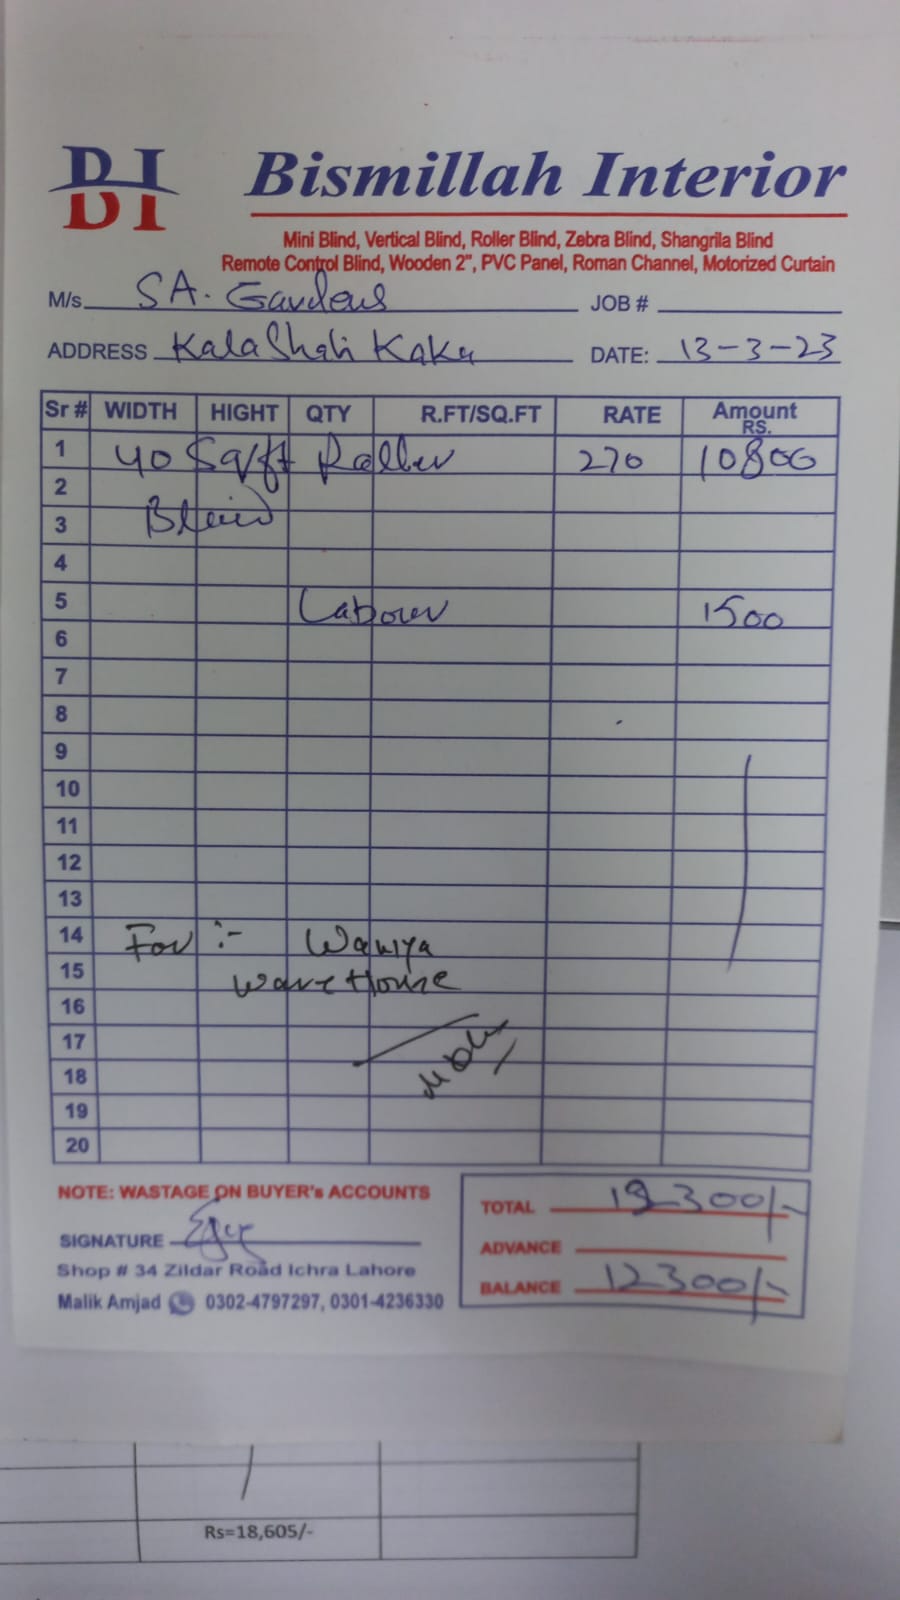 BI Bismillah Interior
Mini Blind, Vertical Blind, Roller Blind, Zebra Blind, Shangrila Blind
Remote Control Blind, Wooden 2", PVC Panel, Roman Channel, Motorized Curtain
M/s SA. Gardens JOB #
ADDRESS Kala Shah Kaku DATE: 13-3-23
Sr # WIDTH HIGHT QTY R.FT/SQ.FT RATE Amount RS.
1 40 Sqft Roller 270 10800
2
3 Blind
4
5 Labour 1500
6
7
8
9
10
11
12
13
14 For :- Waniya
15 Ware House
16
17
18
19
20
NOTE: WASTAGE ON BUYER's ACCOUNTS
TOTAL 12300/-
SIGNATURE
ADVANCE
Shop # 34 Zildar Road Ichra Lahore
BALANCE 12300/-
Malik Amjad 0302-4797297, 0301-4236330
Rs=18,605/-